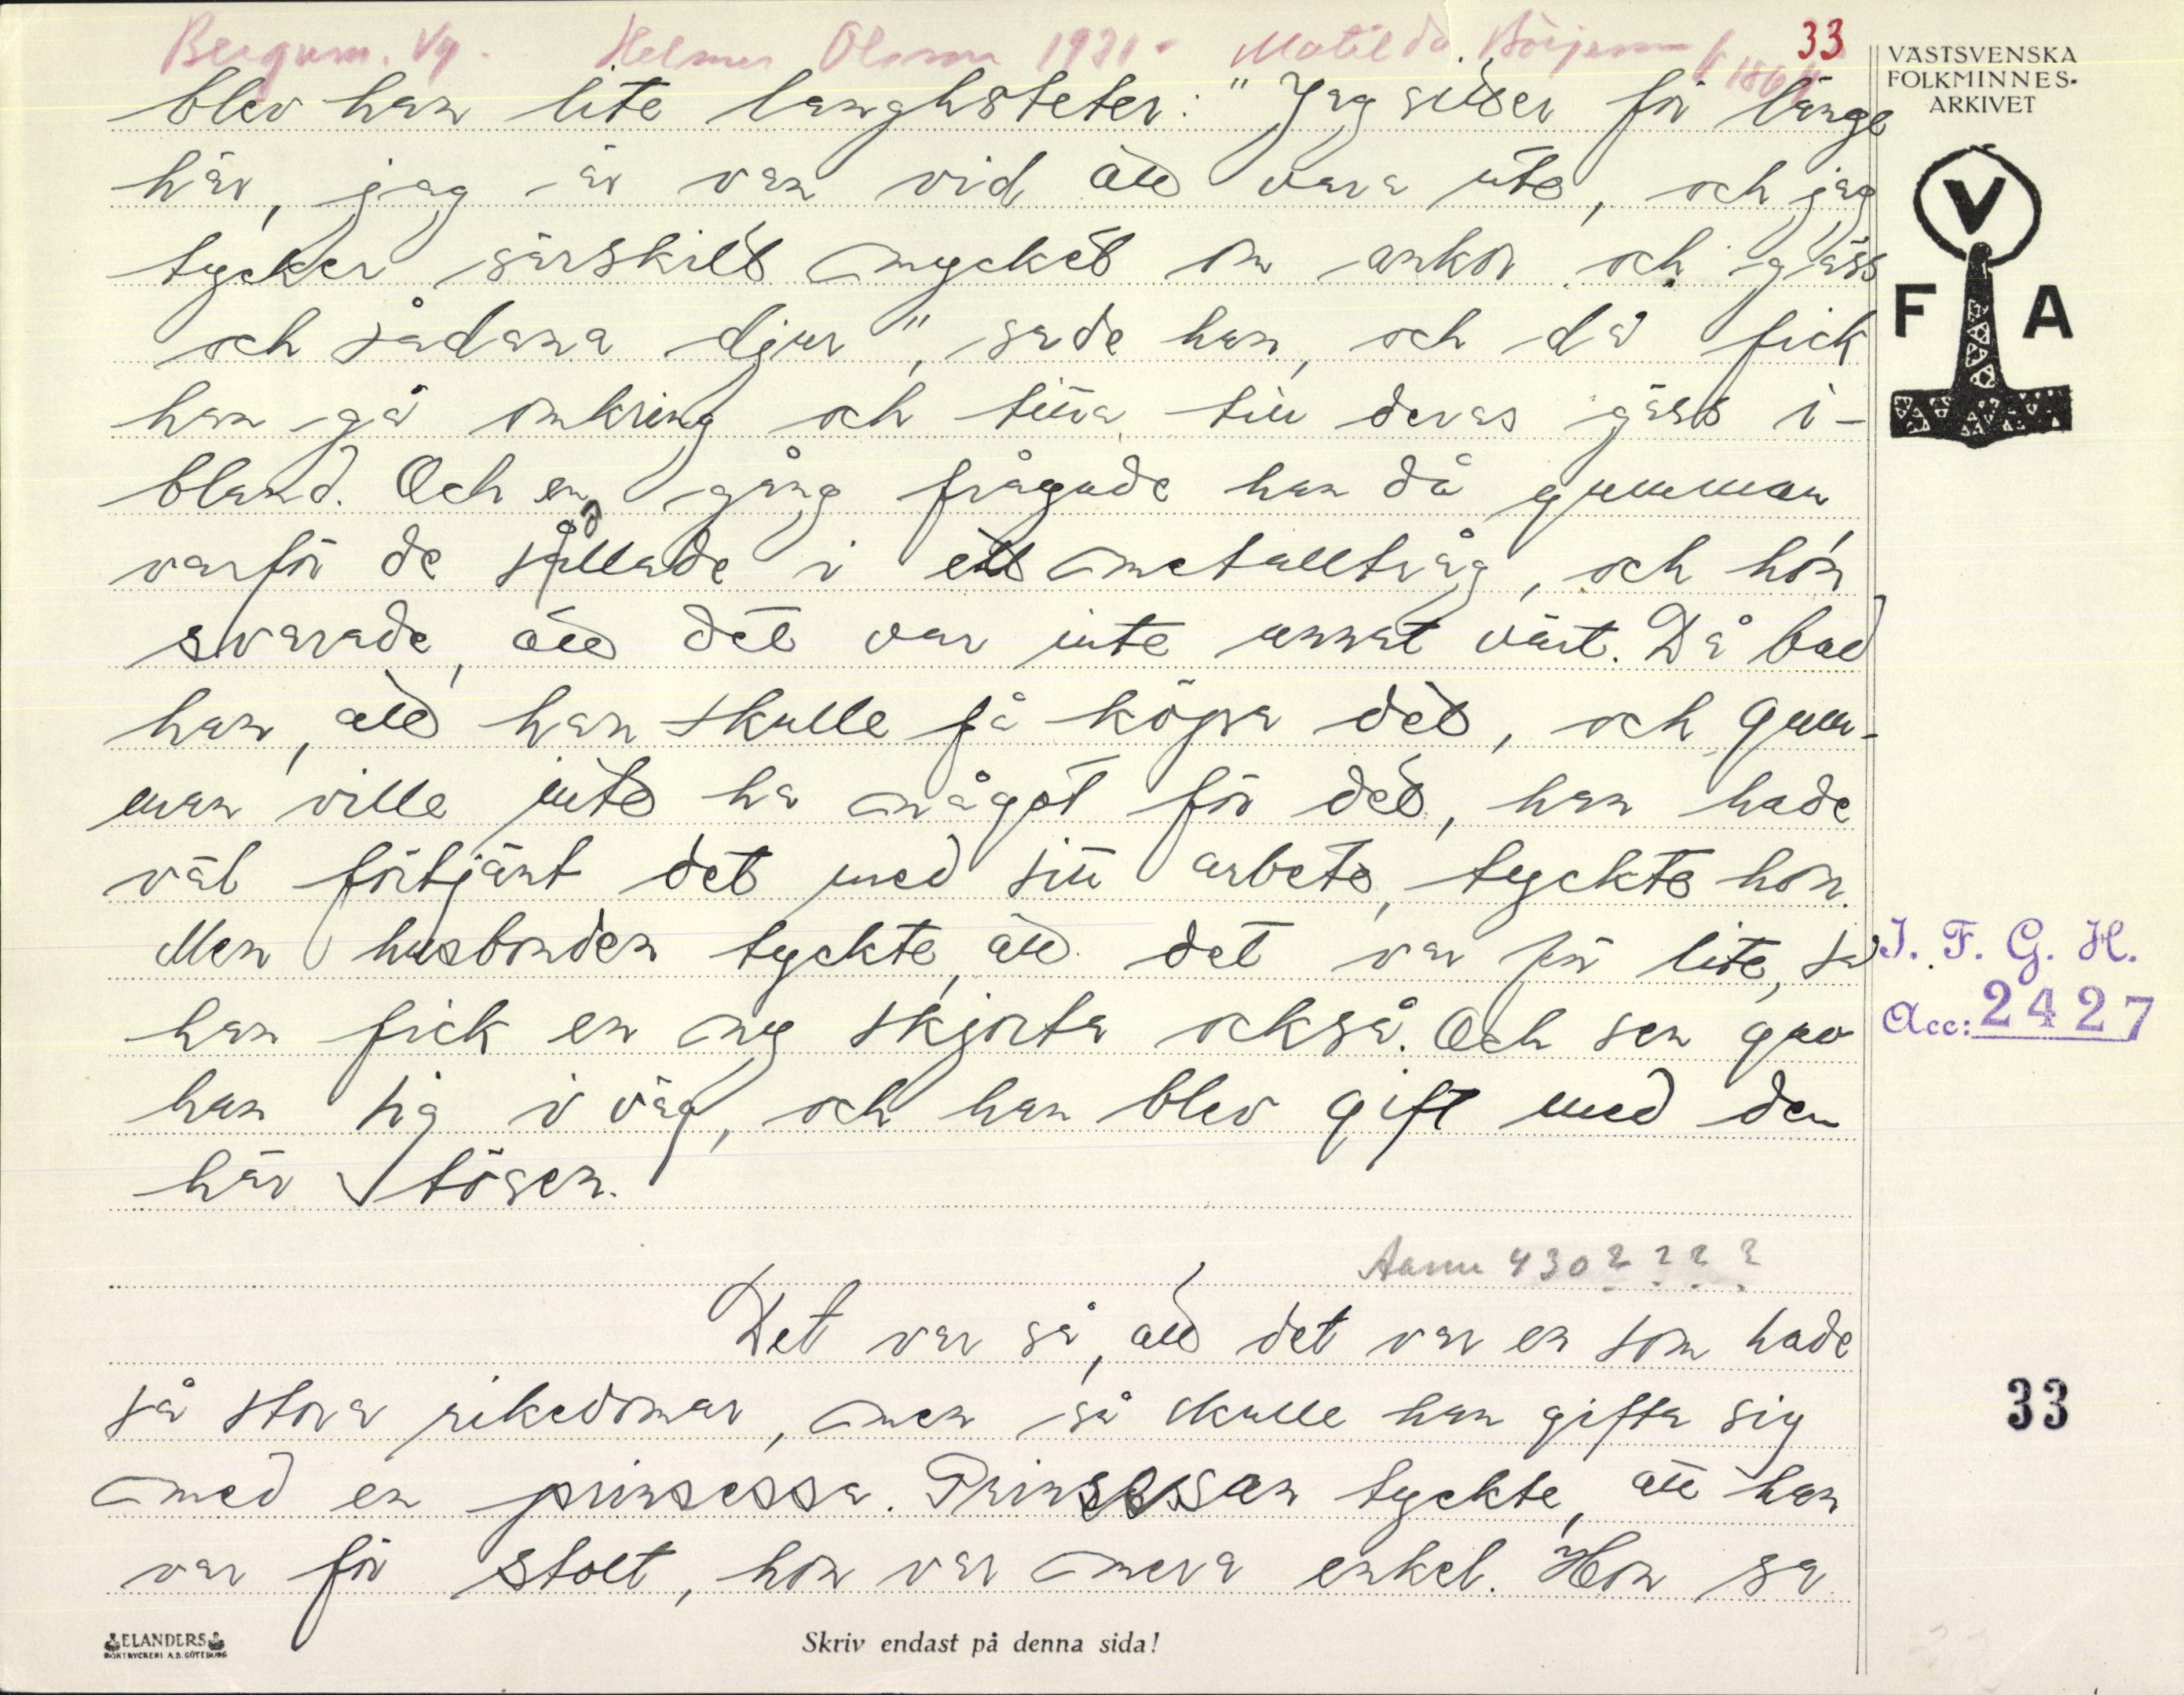 Bergum. Vg. Helmer Olsson 1931. Matilda Börjesson f. 1864 33
VÄSTSVENSKA
FOLKMINNES-
ARKIVET
V
F A
blev han lite langhsteter: "Jag sitter för länge
här, jag är van vid att vara ute, och jag
tycker särskilt mycket om ankor och gäss
och sådana djur", sade han, och då fick
han gå omkring och titta till deras gäss i-
bland. Och en gång frågade han då gumman
varför de sållade i ett metalltråg, och hon
svarade, att det var inte annat värt. Då bad
han, att han skulle få köpa det, och gum-
man ville inte ha något för det, han hade
väl förtjänt det med sitt arbete, tyckte hon.
Men husbonden tyckte, att det var för lite, så
han fick en ny skjorta också. Och sen gav
han sig i väg, och han blev gift med den
här tösen.
I. F. G. H.
Acc: 2427
Aarne 430 ? ? ? ?
Det var så, att det var en som hade
så stora rikedomar, men så skulle han gifta sig
med en prinsessa. Prinsessan tyckte, att han
var för stolt, hon var mera enkel. Hon sa
33
ELANDERS
BOKTRYCKERI A.B. GÖTEBORG
Skriv endast på denna sida!